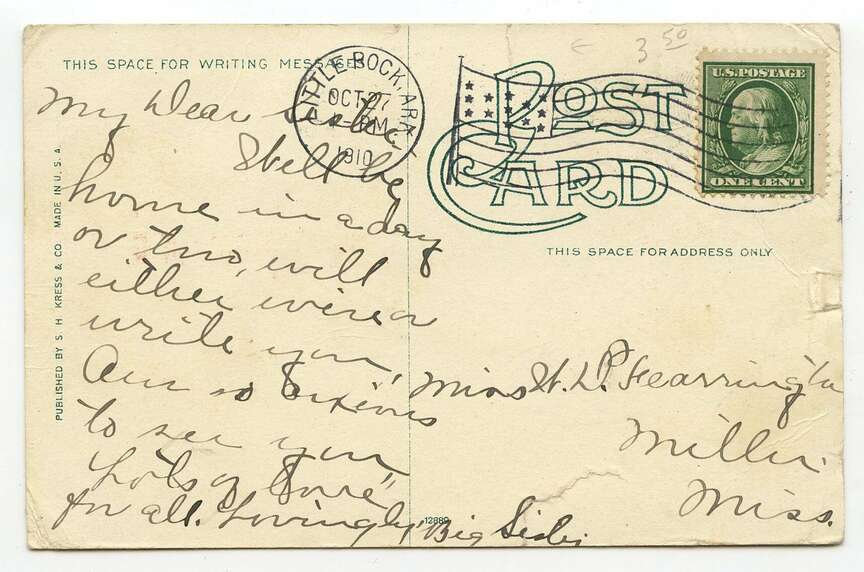 THIS SPACE FOR WRITING MESSAGES
LITTLE ROCK, ARK.
OCT 27
PM
1910
3 50
POST
CARD
U.S. POSTAGE
ONE CENT
THIS SPACE FOR ADDRESS ONLY
PUBLISHED BY S. H. KRESS & CO. MADE IN U. S. A.
My Dear Sister
Shall be
home in a day
or two, will
either wire or
write you,
Am so anxious
to see you
Lots of love
for all. Lovingly, Big Sister
12889
Miss W. L. P. Fearrington
Miller
Miss.